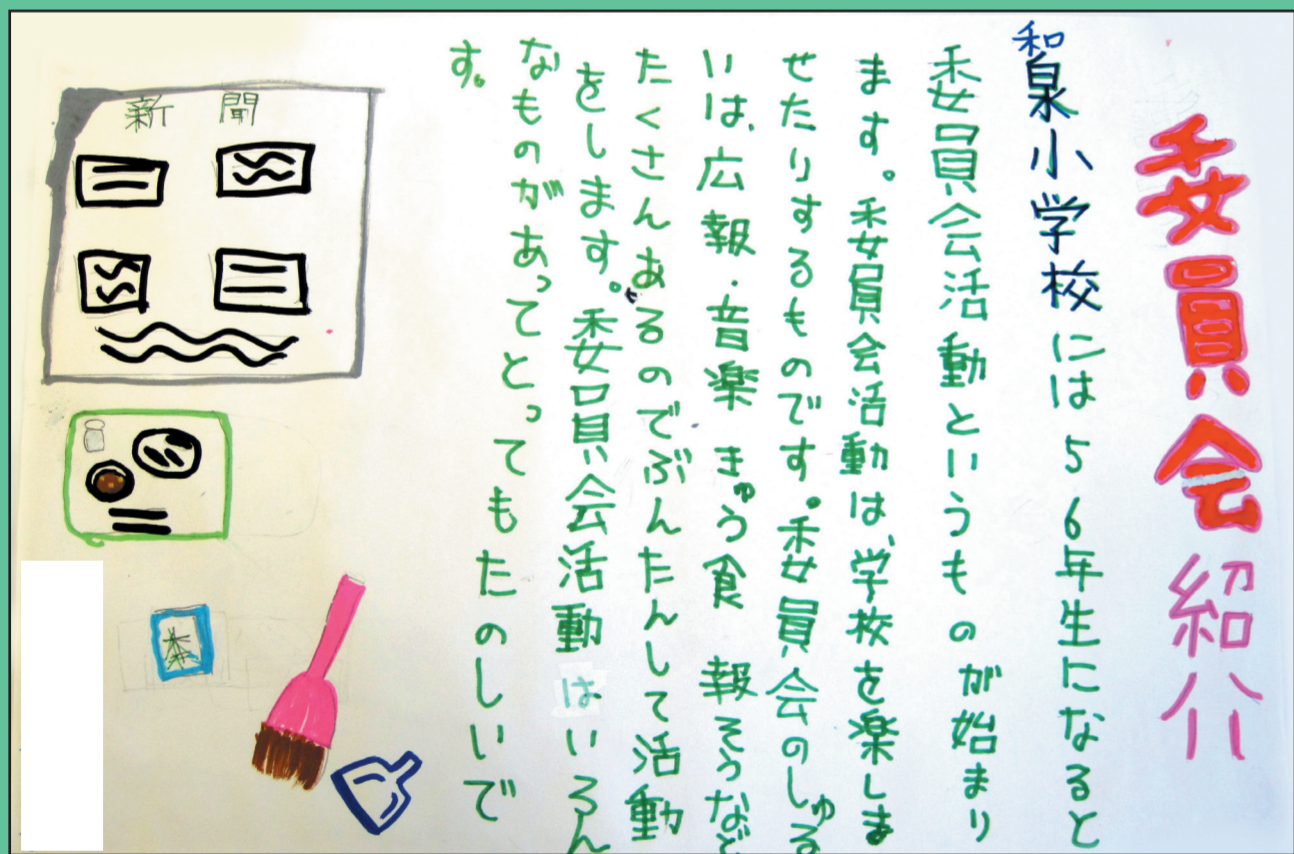 委員会紹介
和泉小学校には5 6年生になると
委員会活動というものが始まり
ます。委員会活動は、学校を楽しま
せたりするものです。委員会のしゅる
いは、広報・音楽 きゅう食 報そうなど
たくさんあるのでぶんたんして活動
をします。委員会活動はいろん
なものがあってとってもたのしいで
す。
新聞